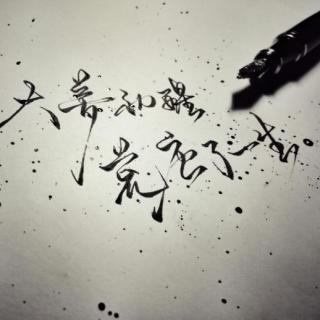 大梦初醒
荒唐了一生。